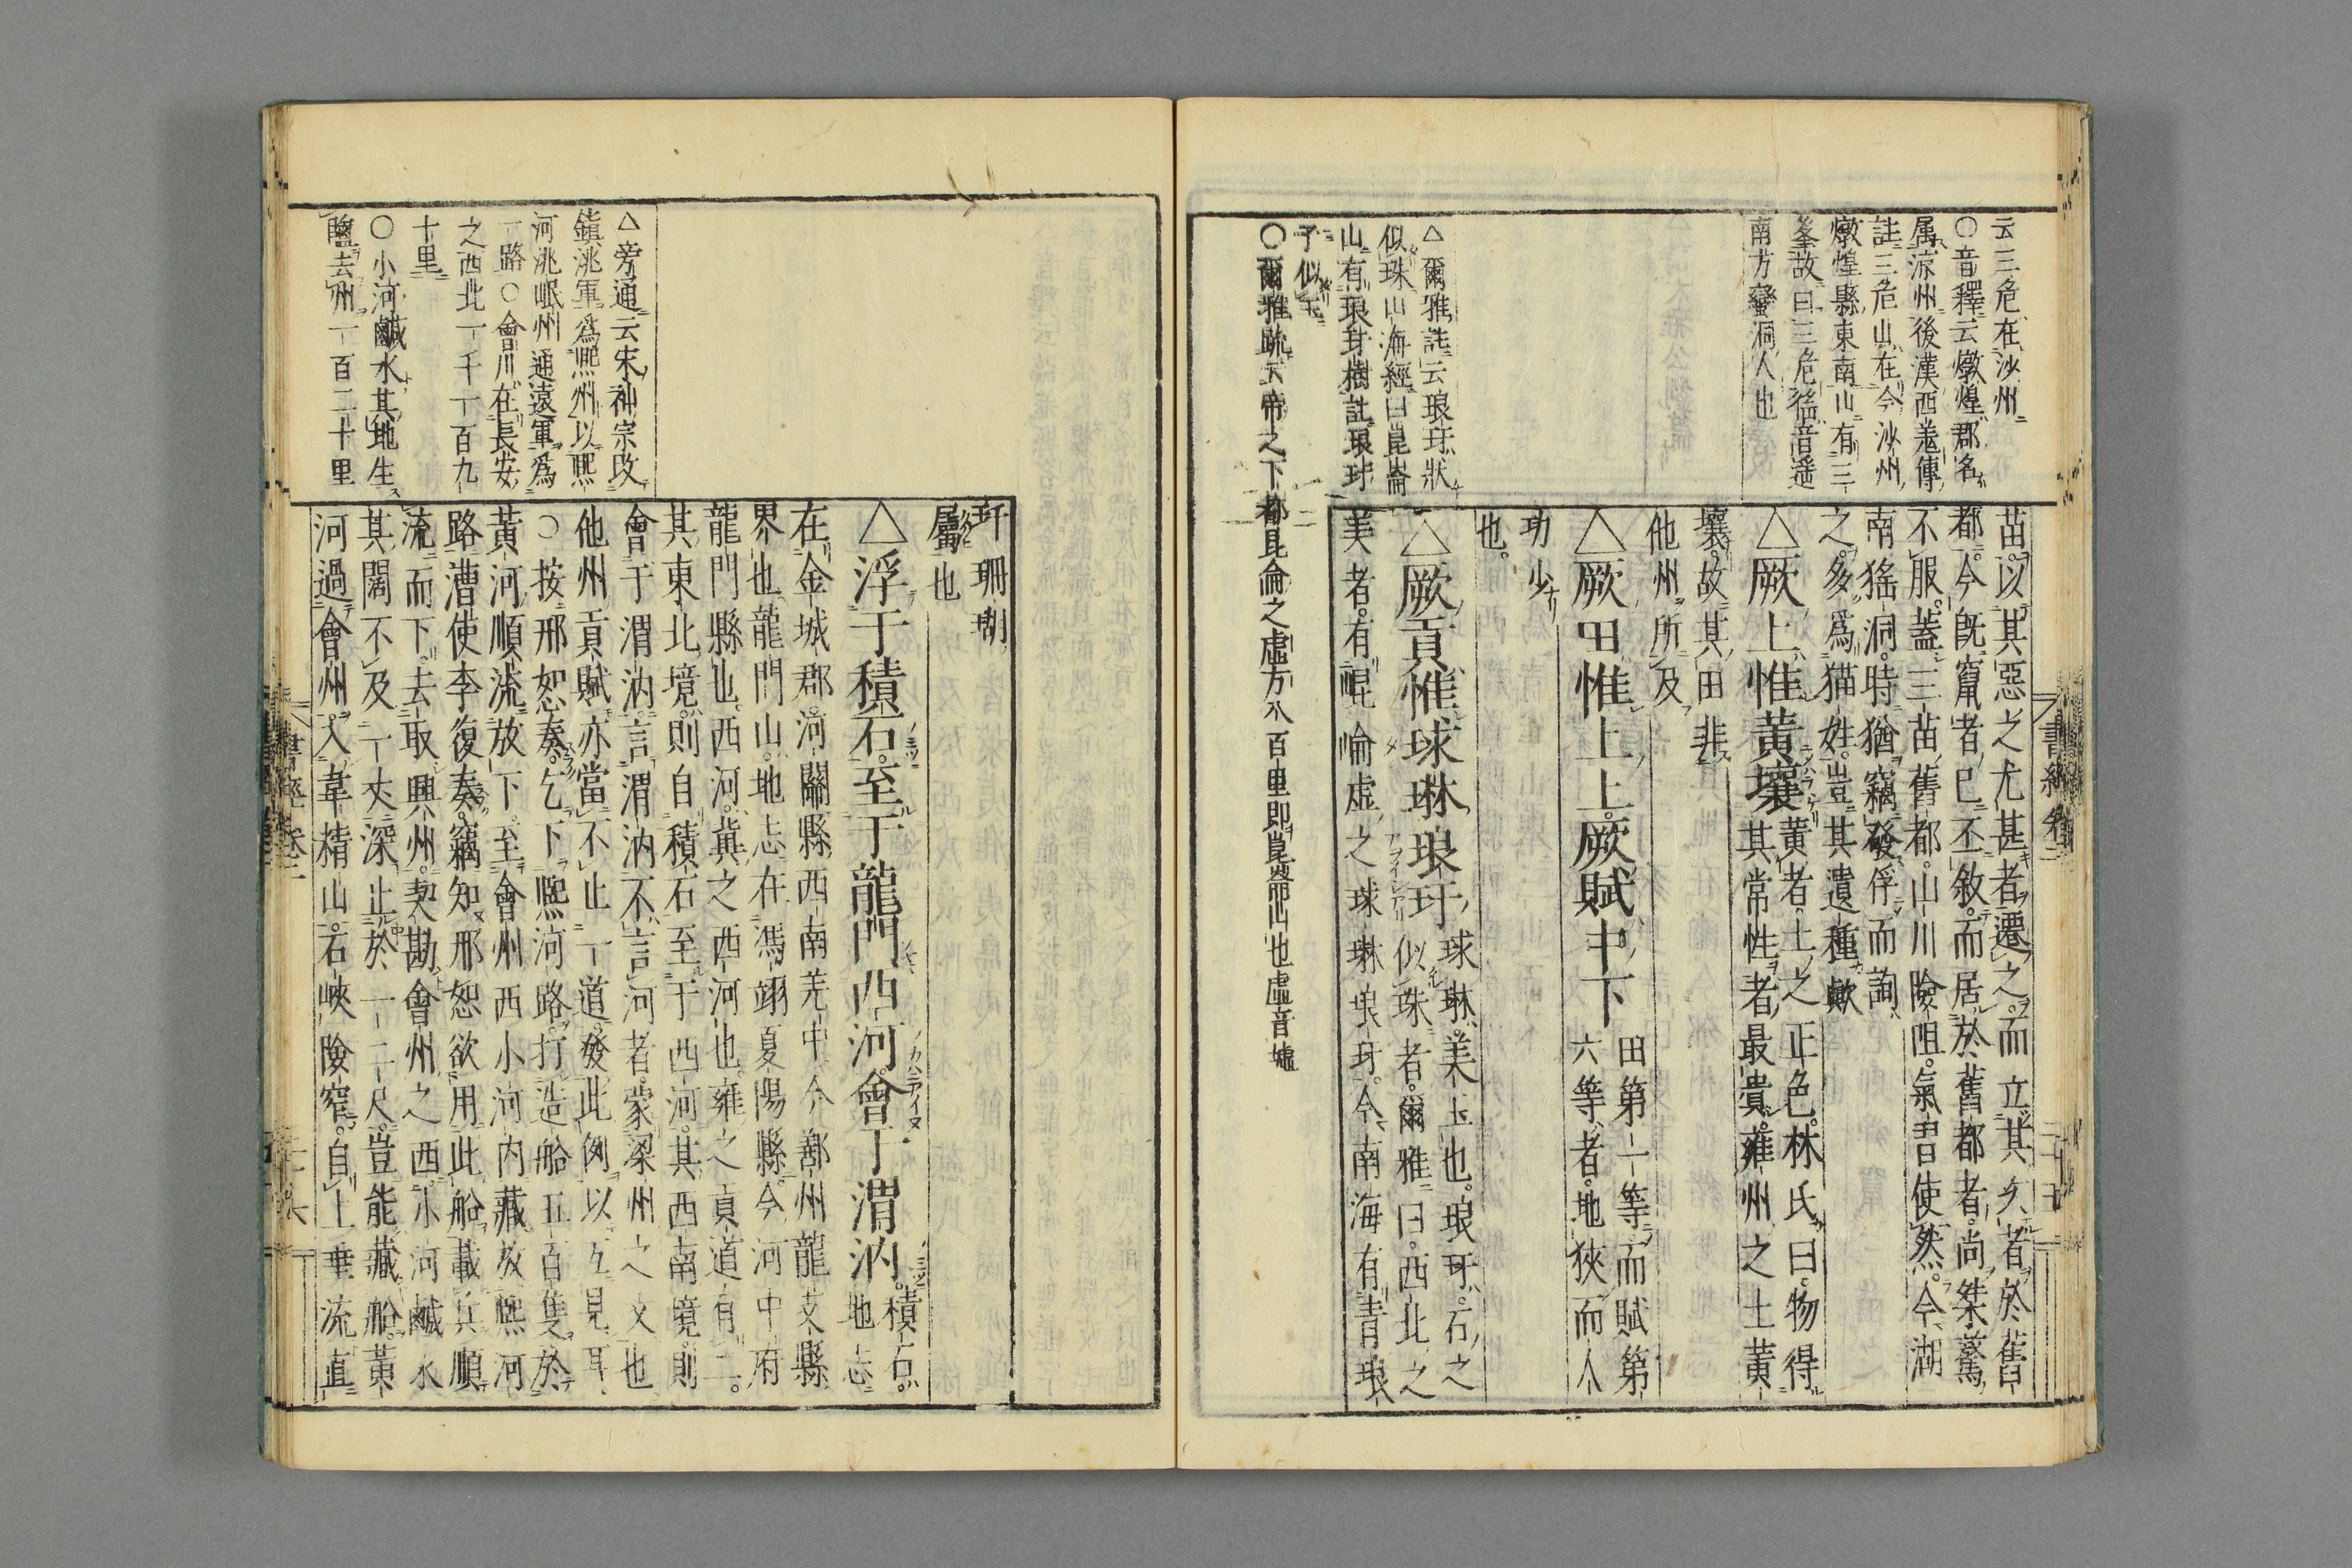 云三危在沙州
○音釋云燉煌郡名
属涼州後漢西羌傳
註三危山在今沙州
燉煌縣東南山有三
峯故曰三危猺音遥
南方蠻洞人也
△爾雅註云琅玕狀
似珠山海經曰崑崙
山有琅玕樹註琅玕
子似珠
○爾雅疏云帝之下都昆侖之虛方八百里即崑崙山也虛音墟
苗以其惡之尤甚者遷之而立其次者於舊
都今旣竄者已丕敘而居於舊都者尚桀驁
不服蓋三苗舊都山川險阻氣習使然今湖
南猺洞時猶竊發俘而詢
之多爲猫姓豈其遺種歟
△厥土惟黃壤黃者土之正色林氏曰物得
其常性者最貴雍州之土黃
壤故其田非
他州所及
△厥田惟上上厥賦中下田第一等而賦第
六等者地狹而人
功少
也
△厥貢惟球琳琅玕球琳美玉也琅玕石之
似珠者爾雅曰西北之
美者有崐崘虛之球琳琅玕今南海有青琅
書經卷二
玕珊瑚
屬也
△浮于積石至于龍門西河會于渭汭積石
地志
在金城郡河關縣西南羌中今鄯州龍支縣
界也龍門山地志在馮翊夏陽縣今河中府
龍門縣也西河冀之西河也雍之貢道有二
其東北境則自積石至于西河其西南境則
會于渭汭言渭汭不言河者蒙梁州之文也
他州貢賦亦當不止一道發此例以互見耳
○按邢恕奏乞下熙河路打造船五百隻於
黃河順流放下至會州西小河内藏放熙河
路漕使李復奏竊知邢恕欲用此船載兵順
流而下去取興州契勘會州之西小河鹹水
其闊不及一丈深止於一二尺豈能藏船黃
河過會州入韋精山石峽險窄自上垂流直
△旁通云宋神宗改
鎮洮軍爲熙州以熙
河洮岷州通遠軍爲
一路○會川在長安
之西北一千一百九
十里
○小河鹹水其地生
鹽去州一百二十里
書經卷二